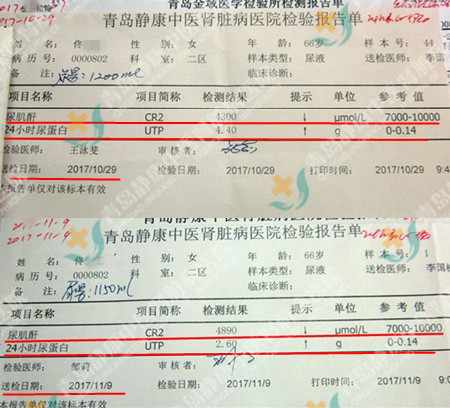 2017-10-29
青岛金域医学检验所检测报告单
青岛静康中医肾脏病医院检验报告单
姓 名: 佟 性 别: 女 年 龄: 66岁 样 本 号: 44
病 历 号: 0000802 科 室: 二区 样本类型: 尿液 送检医师: 李国
备 注: 尿量: 1200ml 临床诊断:
项目名称 项目简称 检测结果 提示 单位 参 考 值
尿肌酐 CR2 4300 ↓ μmol/L 7000-10000
24小时尿蛋白 UTP 4.40 ↑ g 0-0.14
检验医师: 王泳斐 审 核 者:
送检日期: 2017/10/29 检验日期: 2017/10/29 打印时间: 2017/10/29 9:4
本报告单仅对该标本有效
2017-11-9
2017-11-9
青岛静康中医肾脏病医院检验报告单
姓 名: 佟 性 别: 女 年 龄: 66岁 样 本 号: 1
病 历 号: 0000802 科 室: 二区 样本类型: 尿液 送检医师: 李国
备 注: 尿量: 1150ml 临床诊断:
项目名称 项目简称 检测结果 提示 单位 参 考 值
尿肌酐 CR2 4890 ↓ μmol/L 7000-10000
24小时尿蛋白 UTP 2.60 ↑ g 0-0.14
检验医师: 邹莉 审 核 者:
送检日期: 2017/11/9 检验日期: 2017/11/9 打印时间: 2017/11/9 9:0
本报告单仅对该标本有效